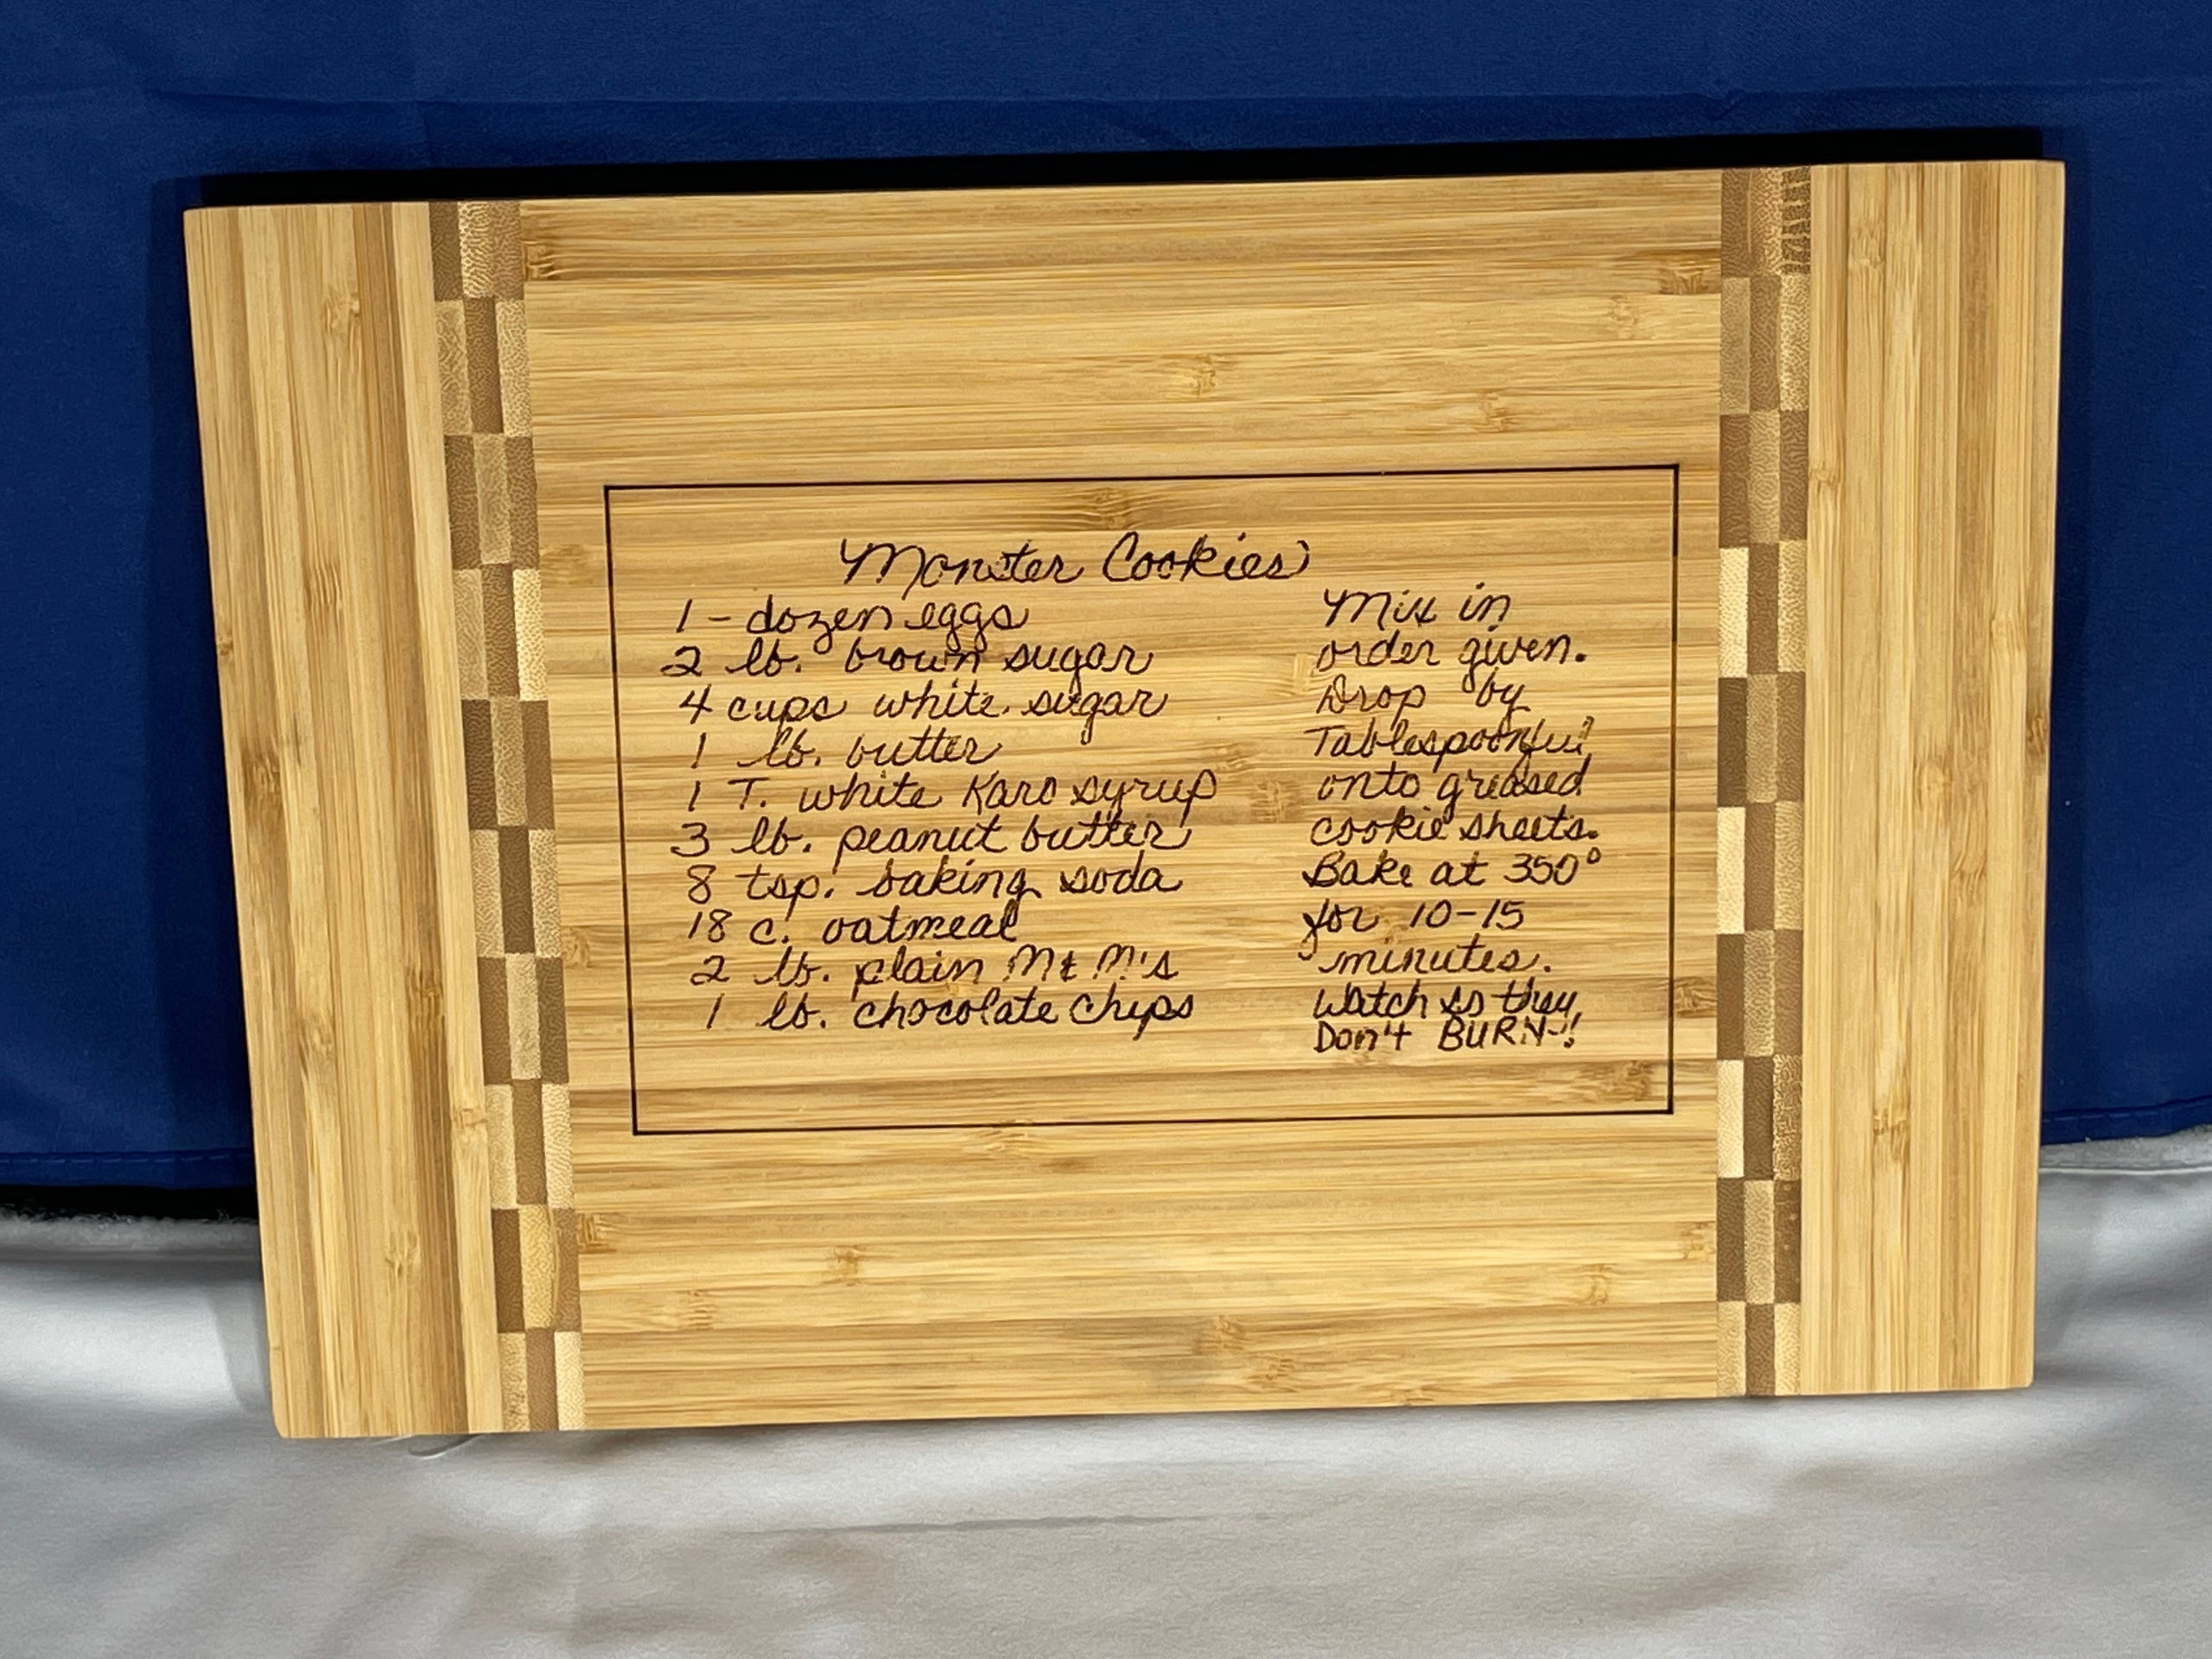 Monster Cookies
1 - dozen eggs
2 lb. brown sugar
4 cups white sugar
1 lb. butter
1 T. white Karo syrup
3 lb. peanut butter
8 tsp. baking soda
18 c. oatmeal
2 lb. plain M & M's
1 lb. chocolate chips
Mix in
order given.
Drop by
Tablespoonful
onto greased
cookie sheets.
Bake at 350°
for 10-15
minutes.
Watch so they
Don't BURN-!!